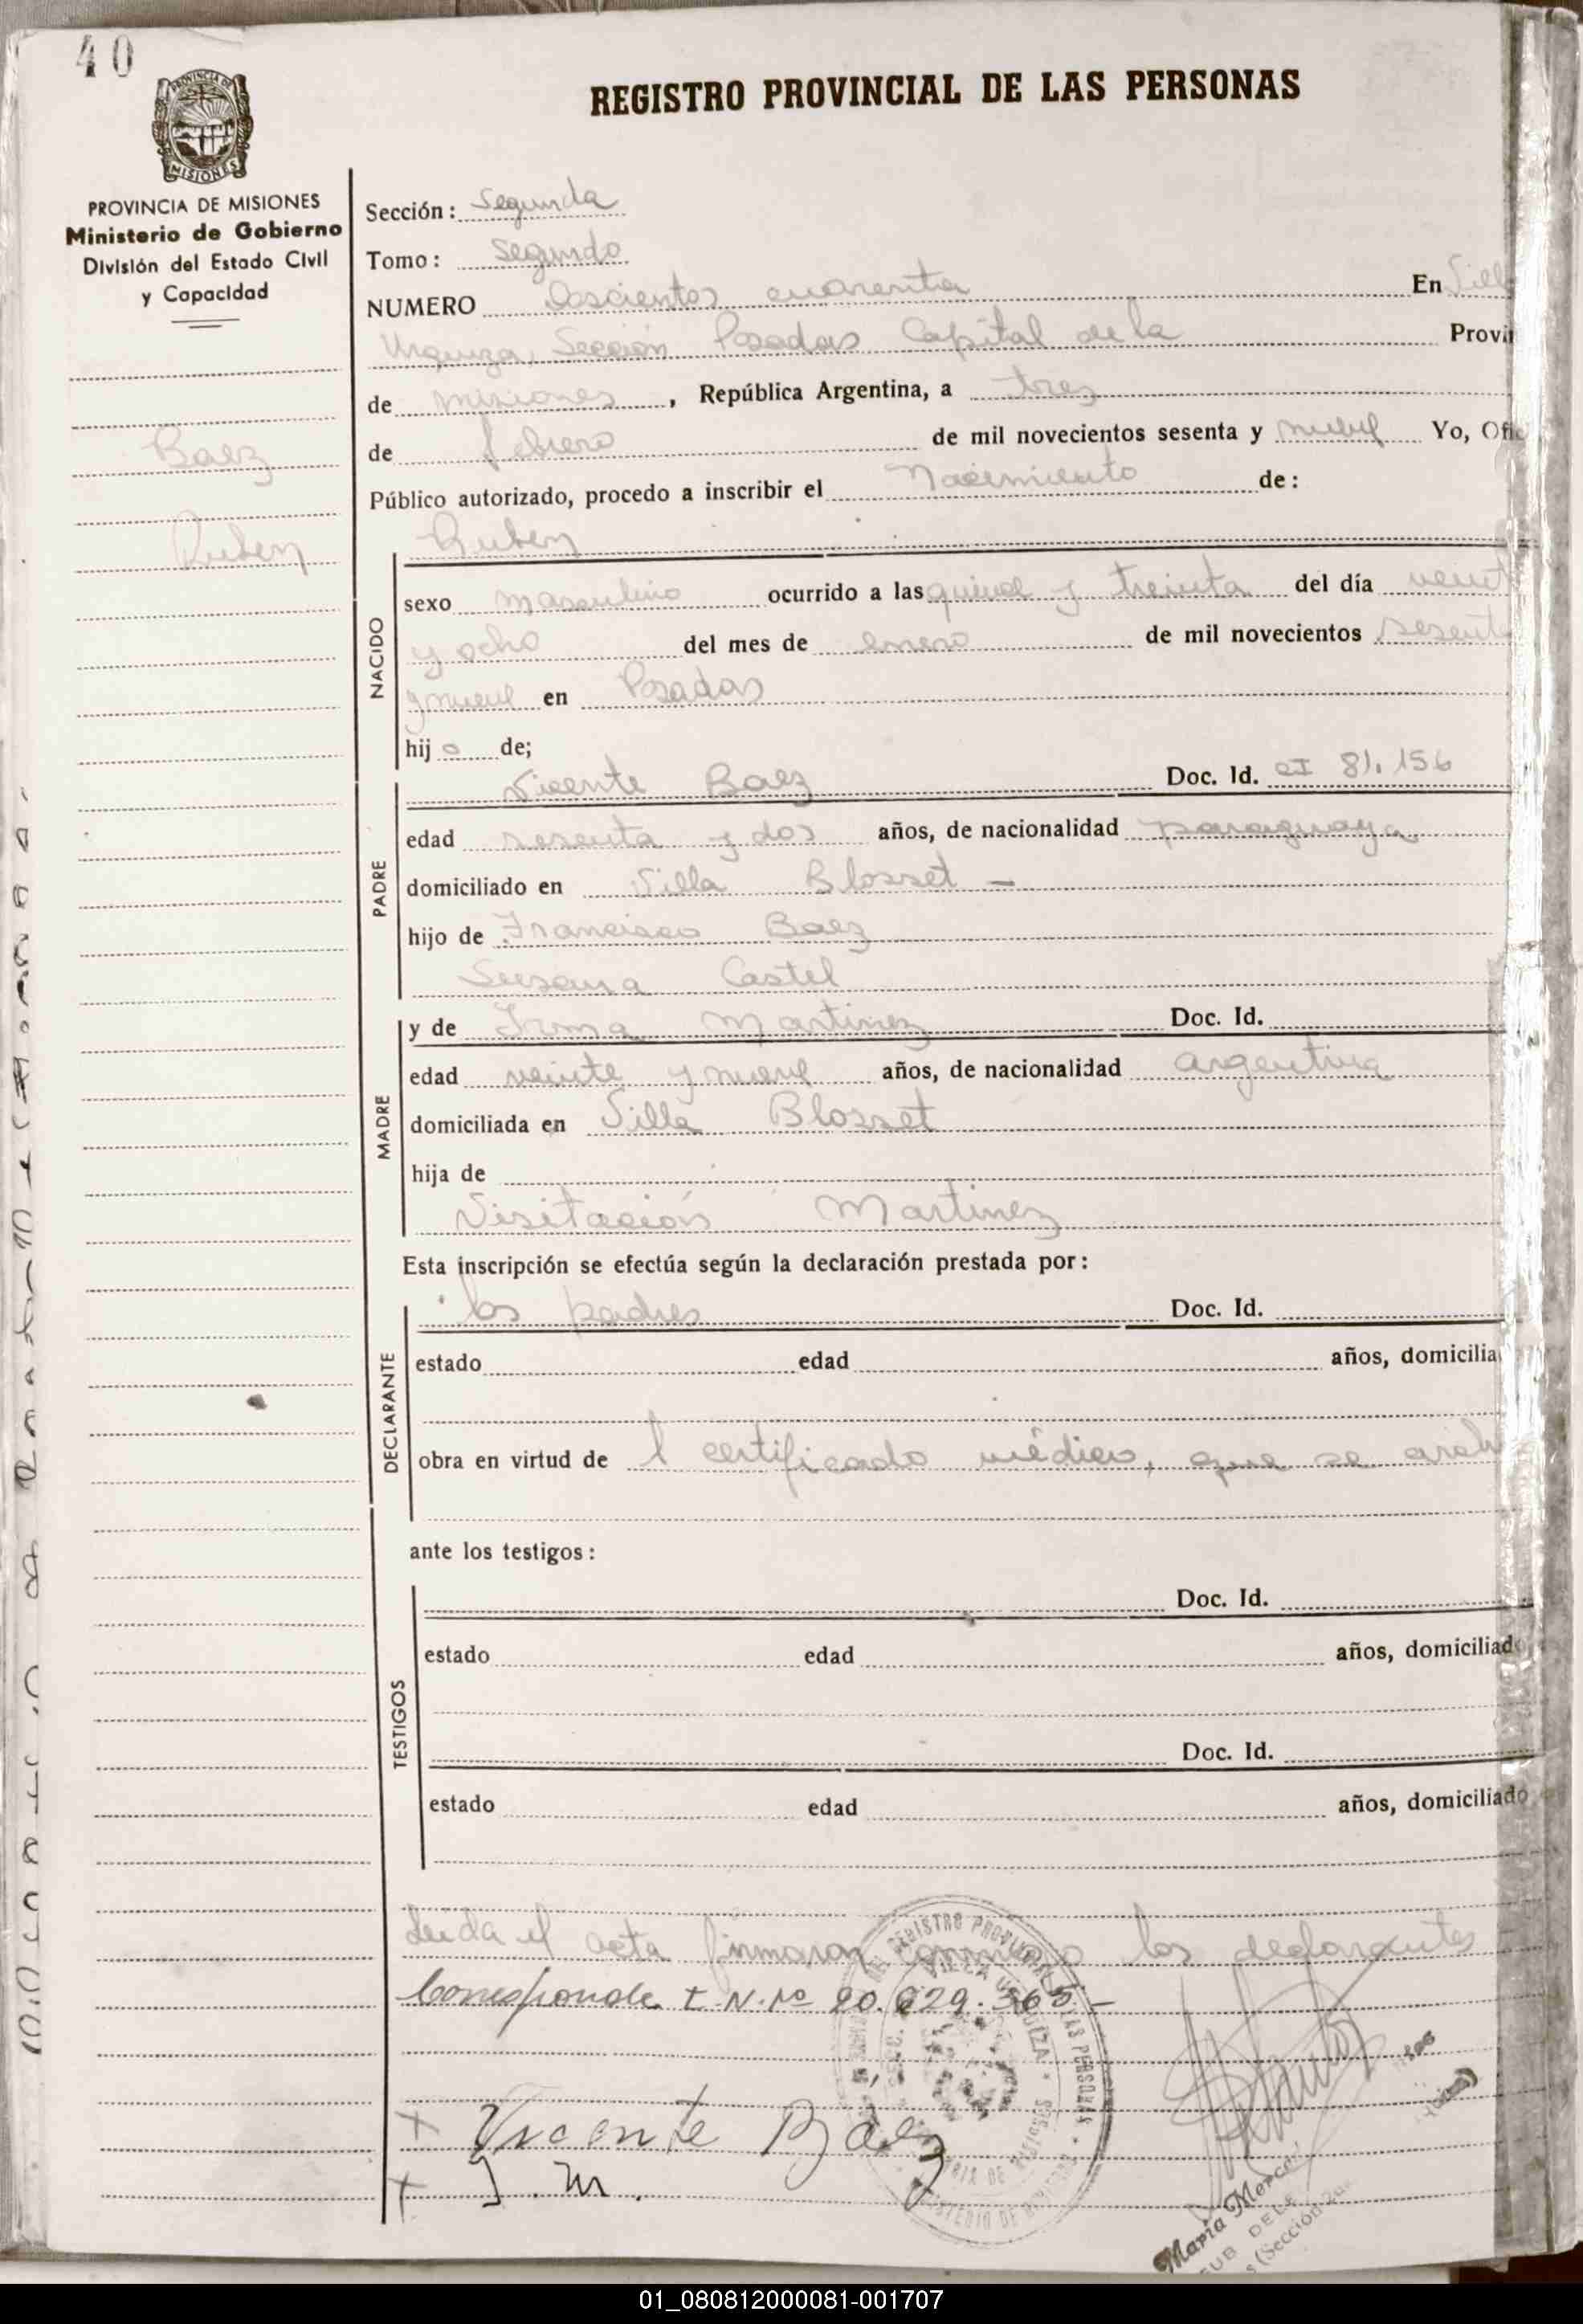 40
PROVINCIA DE
MISIONES
REGISTRO PROVINCIAL DE LAS PERSONAS
PROVINCIA DE MISIONES
Ministerio de Gobierno
División del Estado Civil
y Capacidad
Baez
Ruben
Sección: Segunda
Tomo: Segundo
NUMERO Doscientos cuarenta En Vill
Urquiza, Sección Posadas Capital de la Provin
de misiones, República Argentina, a tres
de febrero de mil novecientos sesenta y nueve Yo, Ofic
Público autorizado, procedo a inscribir el Nacimiento de:
NACIDO
Ruben
sexo masculino ocurrido a las quince y treinta del día veint
y ocho del mes de enero de mil novecientos sesenta
y nueve en Posadas
hijo de;
PADRE
Vicente Baez Doc. Id. CI 81.156
edad sesenta y dos años, de nacionalidad paraguaya
domiciliado en Villa Blosset -
hijo de Francisco Baez
Susana Castel
MADRE
y de Irma Martinez Doc. Id.
edad veinte y nueve años, de nacionalidad argentina
domiciliada en Villa Blosset
hija de
Visitación Martinez
Esta inscripción se efectúa según la declaración prestada por:
DECLARANTE
los padres Doc. Id.
estado edad años, domicilia
obra en virtud de l certificado médico, que se arch
ante los testigos:
TESTIGOS
Doc. Id.
estado edad años, domiciliado
Doc. Id.
estado edad años, domiciliado
Leida el acta firmaron conmigo los declarantes
Corresponde L.N. Nº 20.629.365-
+ Vicente Báez
+ I. M.
REGISTRO PROVINCIAL DE LAS PERSONAS
VILLA URQUIZA
MINISTERIO DE GOBIERNO
María Merce
SUB DELE
(Sección 2a
01_080812000081-001707